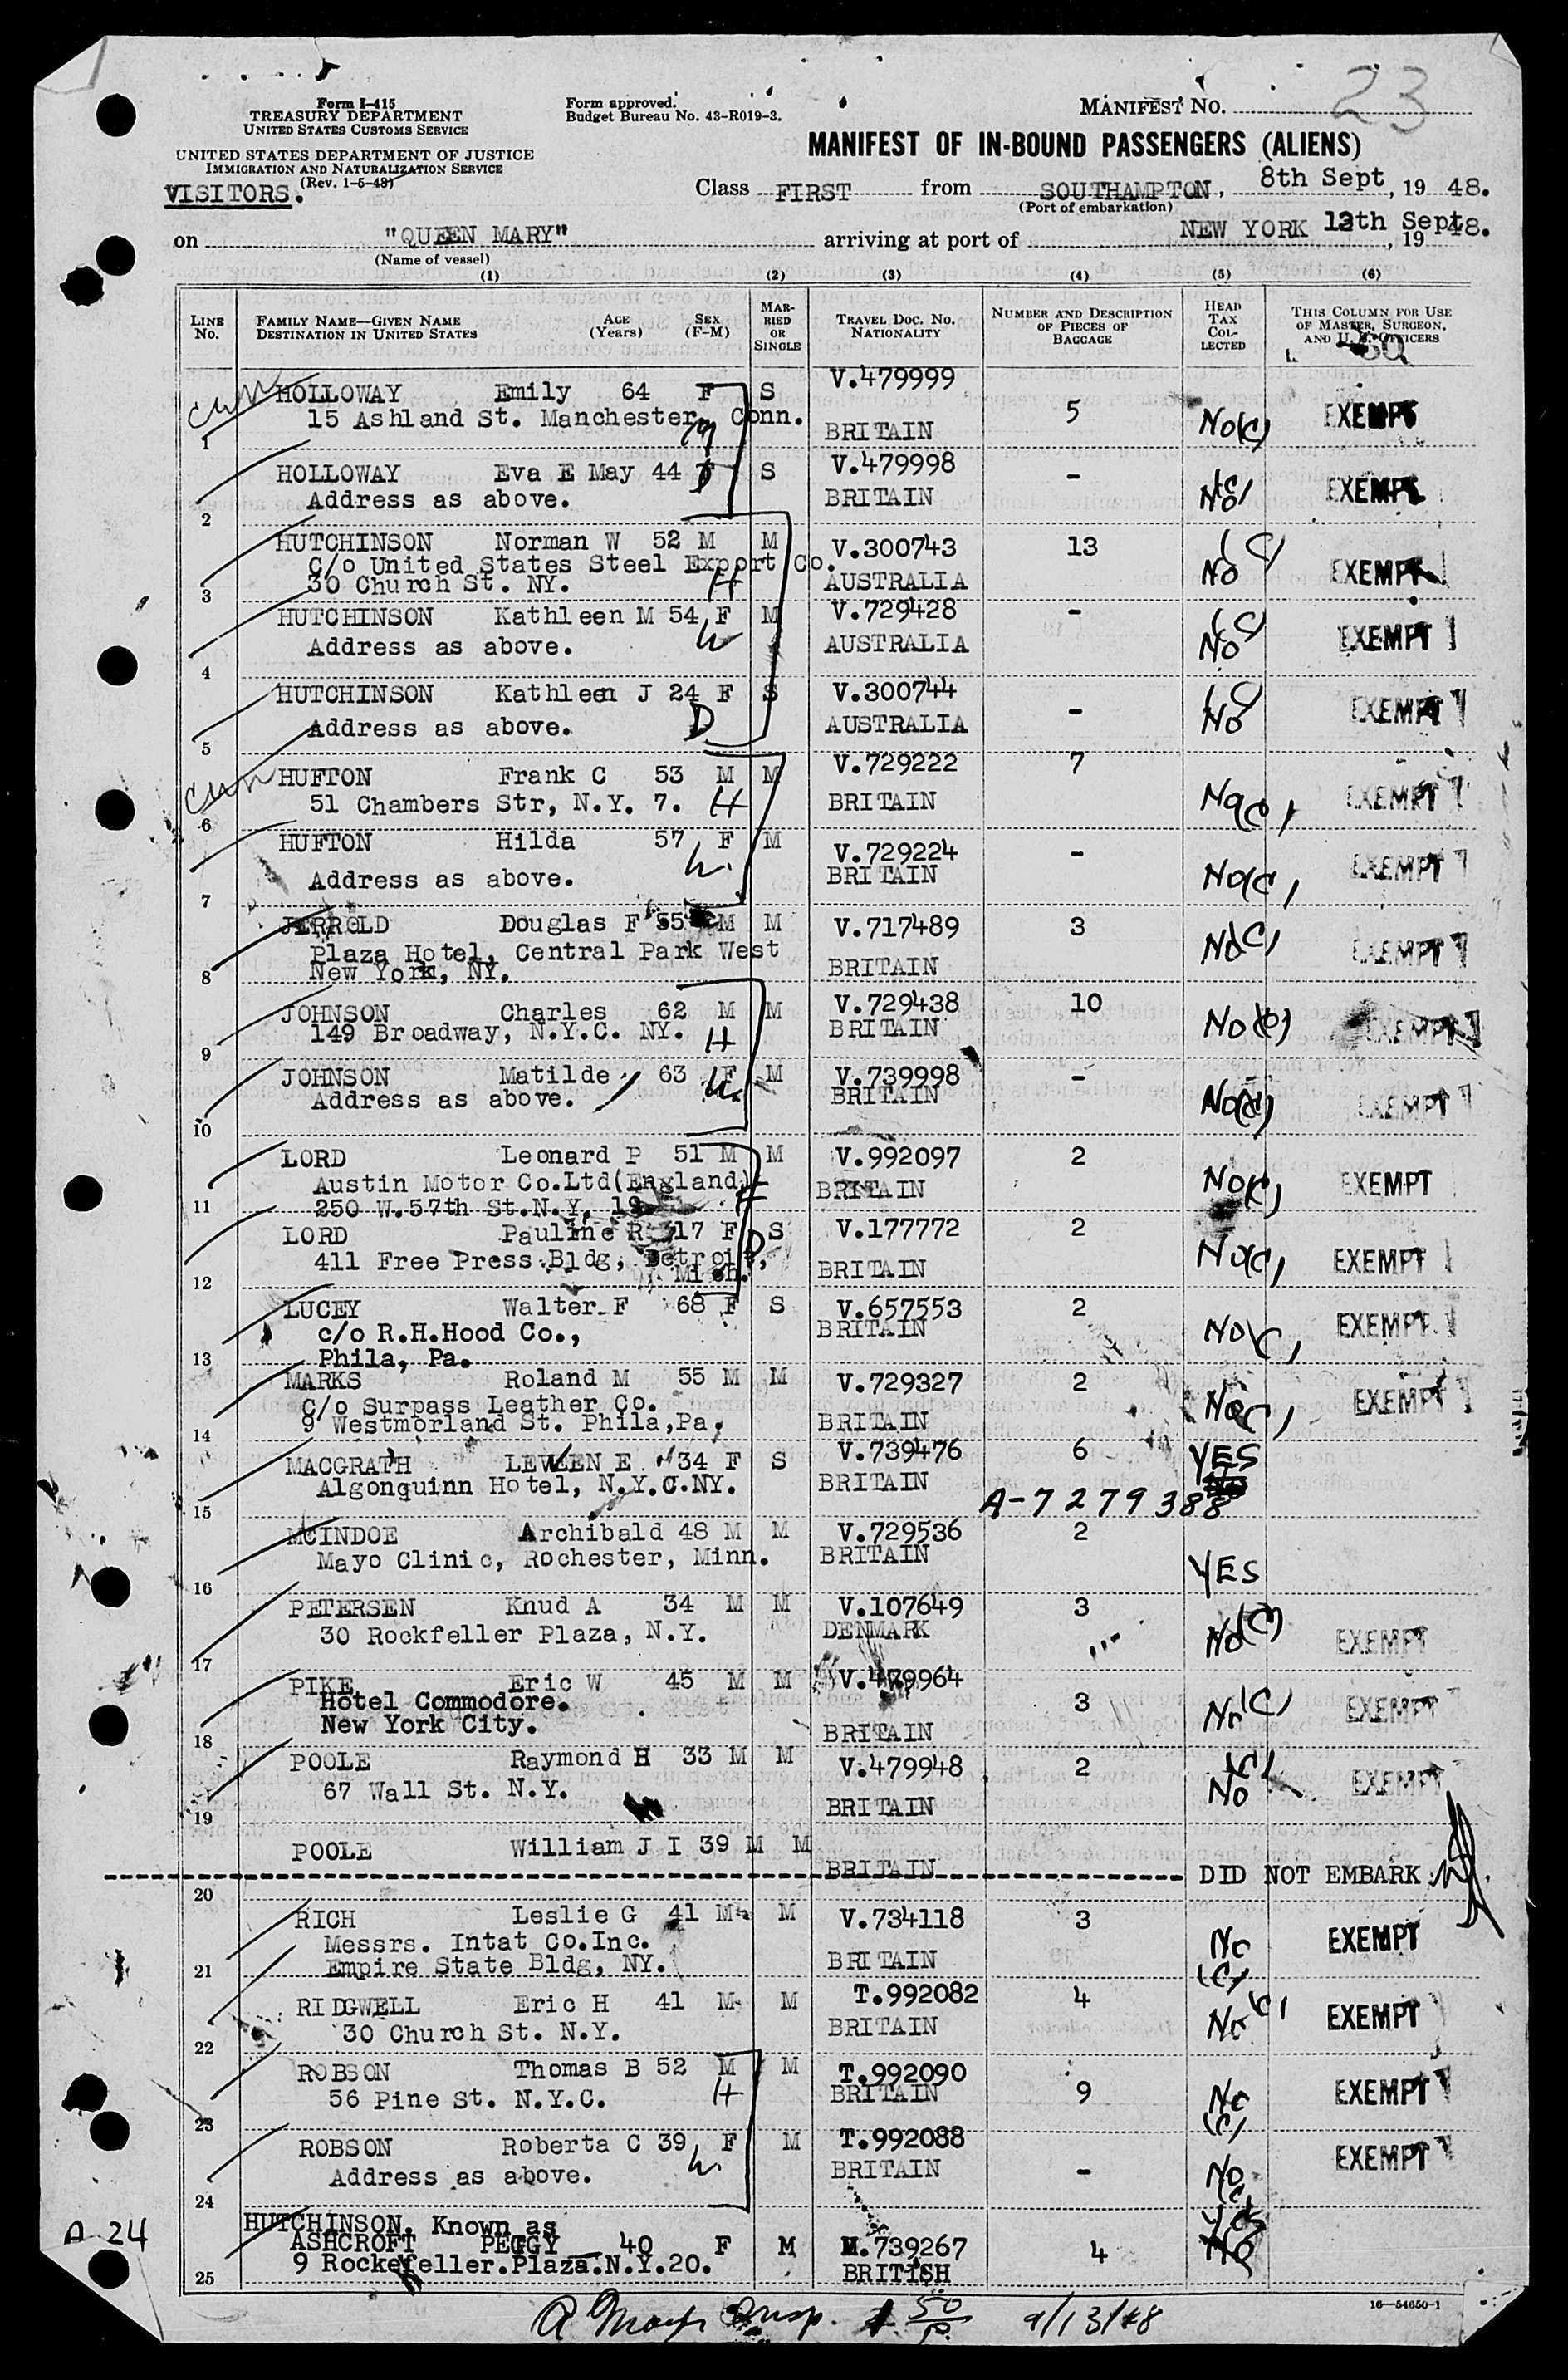 23
Form I-415
TREASURY DEPARTMENT
UNITED STATES CUSTOMS SERVICE
Form approved.
Budget Bureau No. 43-R019-3.
MANIFEST NO.
UNITED STATES DEPARTMENT OF JUSTICE
IMMIGRATION AND NATURALIZATION SERVICE
(Rev. 1-5-48)
VISITORS.
MANIFEST OF IN-BOUND PASSENGERS (ALIENS)
Class FIRST from SOUTHAMPTON, 8th Sept, 19 48.
(Port of embarkation)
on "QUEEN MARY" arriving at port of NEW YORK 13th Sept, 19 48.
(Name of vessel)
(1) (2) (3) (4) (5) (6)
LINE No. FAMILY NAME—GIVEN NAME DESTINATION IN UNITED STATES AGE (Years) SEX (F-M) MARRIED OR SINGLE TRAVEL DOC. NO. NATIONALITY NUMBER AND DESCRIPTION OF PIECES OF BAGGAGE HEAD TAX COLLECTED THIS COLUMN FOR USE OF MASTER, SURGEON, AND U. S. OFFICERS
HOLLOWAY Emily 64 F S V.479999 5 No(c) EXEMPT
15 Ashland St. Manchester, Conn. BRITAIN
1
HOLLOWAY Eva E May 44 F S V.479998 - No EXEMPT
Address as above. BRITAIN
2
HUTCHINSON Norman W 52 M M V.300743 13 No EXEMPT
C/o United States Steel Export Co.
30 Church St. NY. H AUSTRALIA
3
HUTCHINSON Kathleen M 54 F M V.729428 - No EXEMPT
Address as above. W AUSTRALIA
4
HUTCHINSON Kathleen J 24 F S V.300744 - No EXEMPT
Address as above. D AUSTRALIA
5
HUFTON Frank C 53 M M V.729222 7 No EXEMPT
51 Chambers Str, N.Y. 7. H BRITAIN
6
HUFTON Hilda 57 F M V.729224 - No EXEMPT
Address as above. W. BRITAIN
7
JERROLD Douglas F 55 M M V.717489 3 No EXEMPT
Plaza Hotel, Central Park West
New York, NY. BRITAIN
8
JOHNSON Charles 62 M M V.729438 10 No EXEMPT
149 Broadway, N.Y.C. NY. H BRITAIN
9
JOHNSON Matilde 63 F M V.739998 - No EXEMPT
Address as above. BRITAIN
10
LORD Leonard P 51 M M V.992097 2 No EXEMPT
Austin Motor Co.Ltd(England)
250 W.57th St.N.Y. BRITAIN
11
LORD Pauline R 17 F S V.177772 2 No EXEMPT
411 Free Press Bldg, Detroit, Mich. D BRITAIN
12
LUCEY Walter F 68 F S V.657553 2 No EXEMPT
c/o R.H.Hood Co., BRITAIN
Phila, Pa.
13
MARKS Roland M 55 M M V.729327 2 No EXEMPT
C/o Surpass Leather Co.
9 Westmorland St. Phila,Pa, BRITAIN
14
MACGRATH LEWEEN E 34 F S V.739476 6 YES
Algonquinn Hotel, N.Y.C.NY. BRITAIN
A-7279388
15
MCINDOE Archibald 48 M M V.729536 2 YES
Mayo Clinic, Rochester, Minn. BRITAIN
16
PETERSEN Knud A 34 M M V.107649 3 No EXEMPT
30 Rockfeller Plaza, N.Y. DENMARK
17
PIKE Eric W 45 M M V.479964 3 No EXEMPT
Hotel Commodore.
New York City. BRITAIN
18
POOLE Raymond H 33 M M V.479948 2 No EXEMPT
67 Wall St. N.Y. BRITAIN
19
POOLE William J I 39 M M BRITAIN DID NOT EMBARK
20
RICH Leslie G 41 M M V.734118 3 No EXEMPT
Messrs. Intat Co.Inc.
Empire State Bldg, NY. BRITAIN
21
RIDGWELL Eric H 41 M M T.992082 4 No EXEMPT
30 Church St. N.Y. BRITAIN
22
ROBSON Thomas B 52 M M T.992090 9 No EXEMPT
56 Pine St. N.Y.C. H BRITAIN
23
ROBSON Roberta C 39 F M T.992088 - No EXEMPT
Address as above. W. BRITAIN
24
HUTCHINSON. Known as
A 24 ASHCROFT PEGGY 40 F M M.739267 4 Yes
9 Rockefeller.Plaza.N.Y.20. BRITISH
25
16—54650-1
50 9/13/48